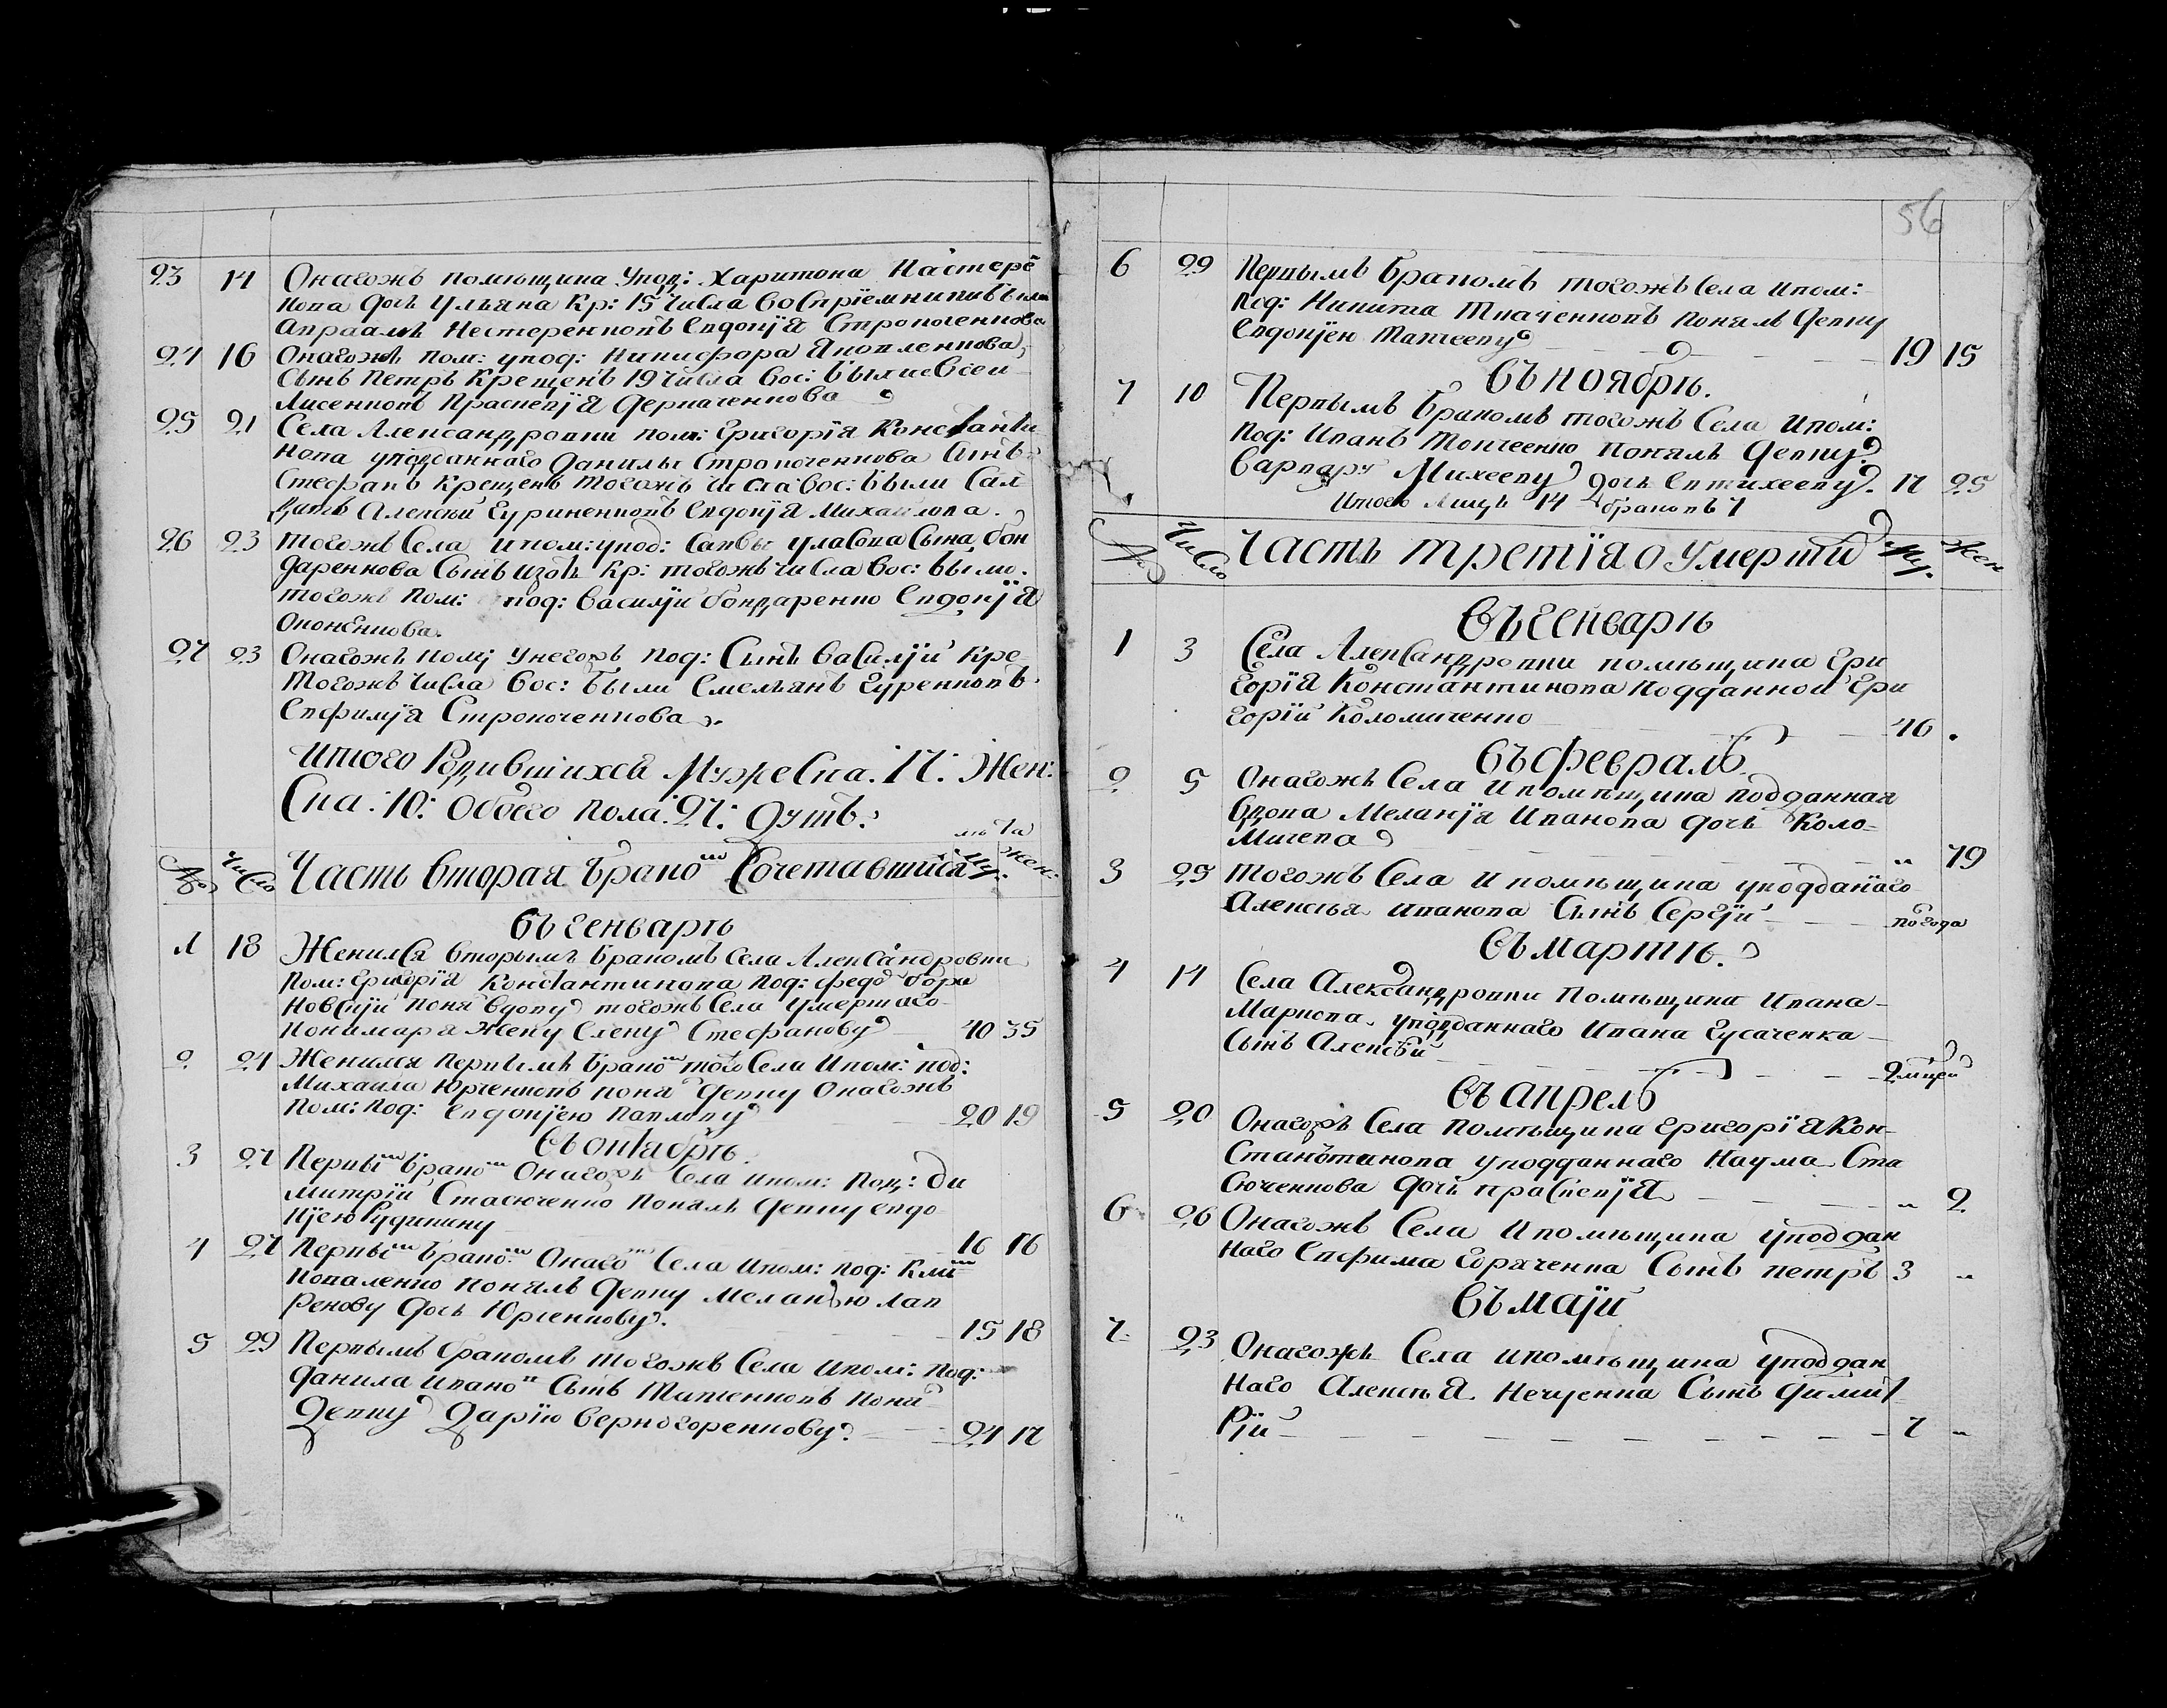 23 14 Онагожъ помѣщика упод: Харитона Настерѐ
кова дочъ Ульяна кр: 15 числа воспріемники были
Авраамъ Нестеренковъ Евдокїя Строкоченкова
24 16 Онагожъ пом: упод: Никифора Яковленкова
сынъ Петръ крещенъ 19 числа вос: были
Лисенковъ Праскевїя Деркаченкова
25 21 Села Александровки пом: Григорїя Константи
нова уподданнаго Данилы Строкоченкова сынъ
Стефанъ крещенъ тогожъ числа вос: были
Алексѣй Гуриненковъ Евдокїя Михаилова.
26 23 Тогожъ села ипом: упод: Савы Улавова сына Бон
даренкова сынъ кр: тогожъ числа вос: были.
тогожъ пом: под: Василїй Бондаренко Евдокїя
Кононенкова.
27 23 Онагожъ пом: унегожъ под: сынъ Василїй кре
тогожъ числа вос: были Емельянъ Гуренковъ
Евфимїя Строкоченкова.
Итого родившихся мужеска. 17. Жен:
ска: 10: Обоего пола: 27: душъ:
лѣта
№ Число Часть вторая брако͏мъ сочетавшися Му: Жен:
Въ генварѣ
1 18 Женился вторымъ бракомъ села Александровки
пом: Григорїя Константинова под:
новскїй поня вдову тогожъ села умершаго
пономаря жену Елену Стефанову 40 35
2 24 Женился первымъ брако͏м того села ипом: под:
Михаила Юрченковъ поня девку онагожъ
пом: под: Евдокїею Павлову 20 19
Въ октябрѣ.
3 27 Первы͏м брако͏м онагожъ села ипом: под: Ди
митрїй Стасюченко понялъ девку Евдо
кїею Рудичину 16 16
4 27 Первы͏м брако͏м онаго села ипом: под: Кли͏м
Коваленко понялъ девку Меланью Лав
ренову дочъ Юрченкову. 15 18
5 29 Первымъ бракомъ тогожъ села ипом: под:
Данила Ивано͏в сынъ поня
девку Дарїю Верногоренкову. 24 17
56
6 29 Первымъ бракомъ тогожъ села ипом:
под: Никита Ткаченковъ понялъ девку
Евдокїею Матвееву 19 15
Въ ноябрѣ.
7 10 Первымъ бракомъ тогожъ села ипом:
под: Иванъ Товчеенко понялъ девку
Варвару Михееву дочъ Евтихееву. 17 25
Итого лицъ 14 браковъ 7
№ Число Часть третїя о умерши Му: Жен
Въ генварѣ
1 3 Села Александровки помѣщика Гри
горїя Константинова подданной Гри
горїй Коломиченко 46
Въ февралѣ.
2 5 Онагожъ села ипомѣщика подданная
вдова Меланїя Иванова дочъ Коло-
мичева „ 79
3 25 Тогожъ села ипомѣщика уподданаго
Алексѣя Иванова сынъ Сергїй полгода
Въ мартѣ.
4 14 Села Александровки помѣщика Ивана
Маркова, уподданнаго Ивана Гусаченка
сынъ Алексѣй 2 мцей
Въ апрелѣ
5 20 Онагожъ села помѣщика Григорїя Кон-
стантинова уподданнаго Наума Ста
сюченкова дочъ Праскевїя „ 2
6 26 Онагожъ села ипомѣщика уподдан
наго Евфима Горяченка сынъ Петръ 3 „
Въ маїи
7 23 Онагожъ села ипомѣщика уподдан
наго Алексѣя Нечуенка сынъ Димит
рїй 7 „